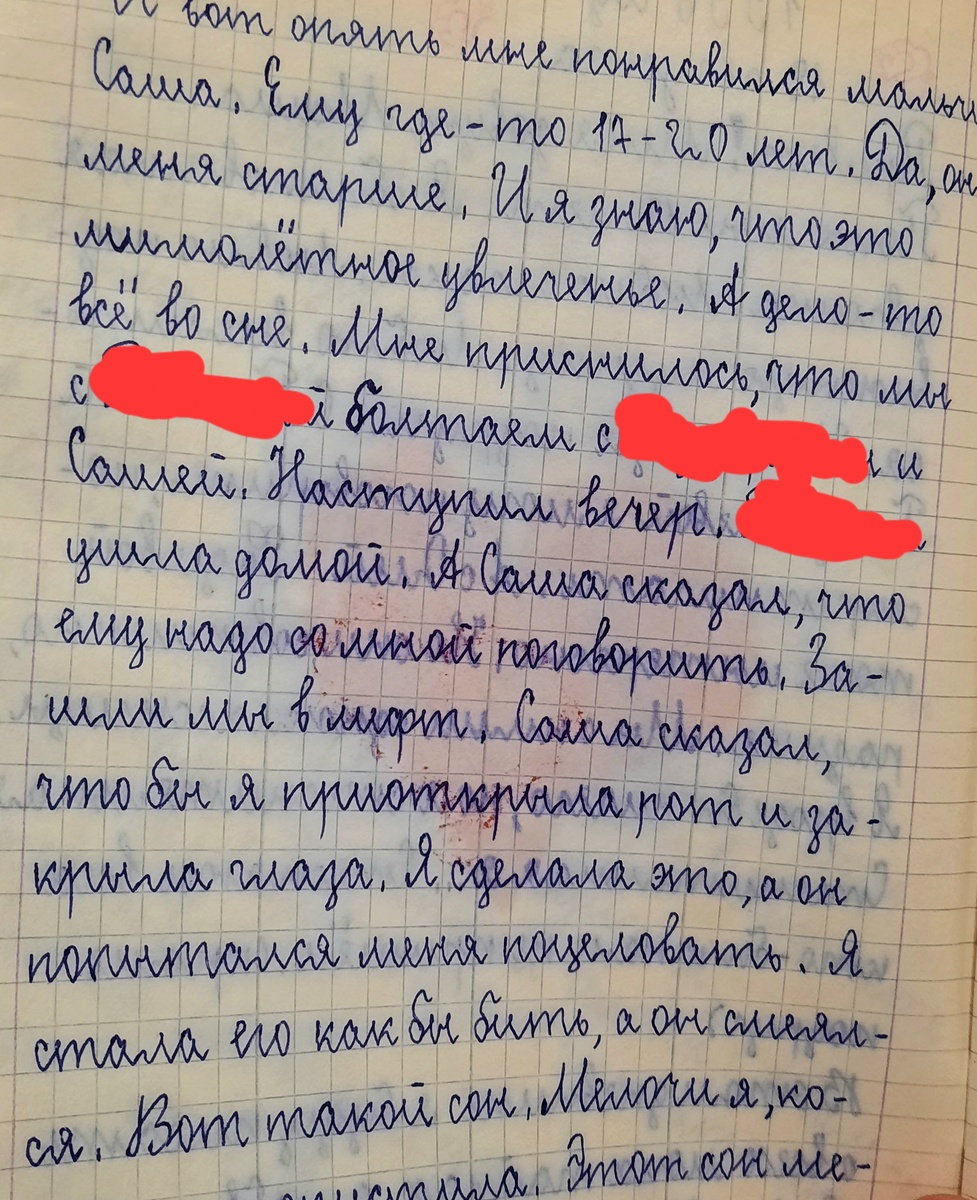 И вот опять мне понравился мальчи
Саша. Ему где-то 17-20 лет. Да, он
меня старше. И я знаю, что это
мимолётное увлеченье. А дело-то
всё во сне. Мне приснилось, что мы
с й болтаем с и
Сашей. Наступил вечер.
ушла домой. А Саша сказал, что
ему надо со мной поговорить. За-
шли мы в лифт. Саша сказал,
что бы я приоткрыла рот и за-
крыла глаза. Я сделала это, а он
попытался меня поцеловать. Я
стала его как бы бить, а он смеял-
ся. Вот такой сон. Мелочи я, ко-
Этот сон ме-